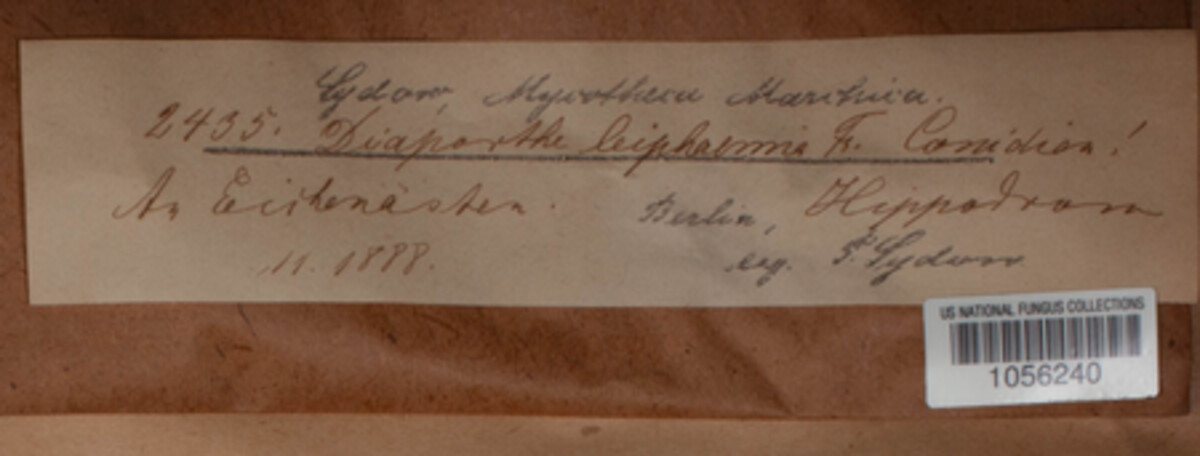 Sydow, Mycotheca Marchica.
2435. Diaporthe leiphaemia Fr. Conidien!
An Eichenästen. Berlin, Hippodrom
11. 1888. leg. P. Sydow
US NATIONAL FUNGUS COLLECTIONS
1056240